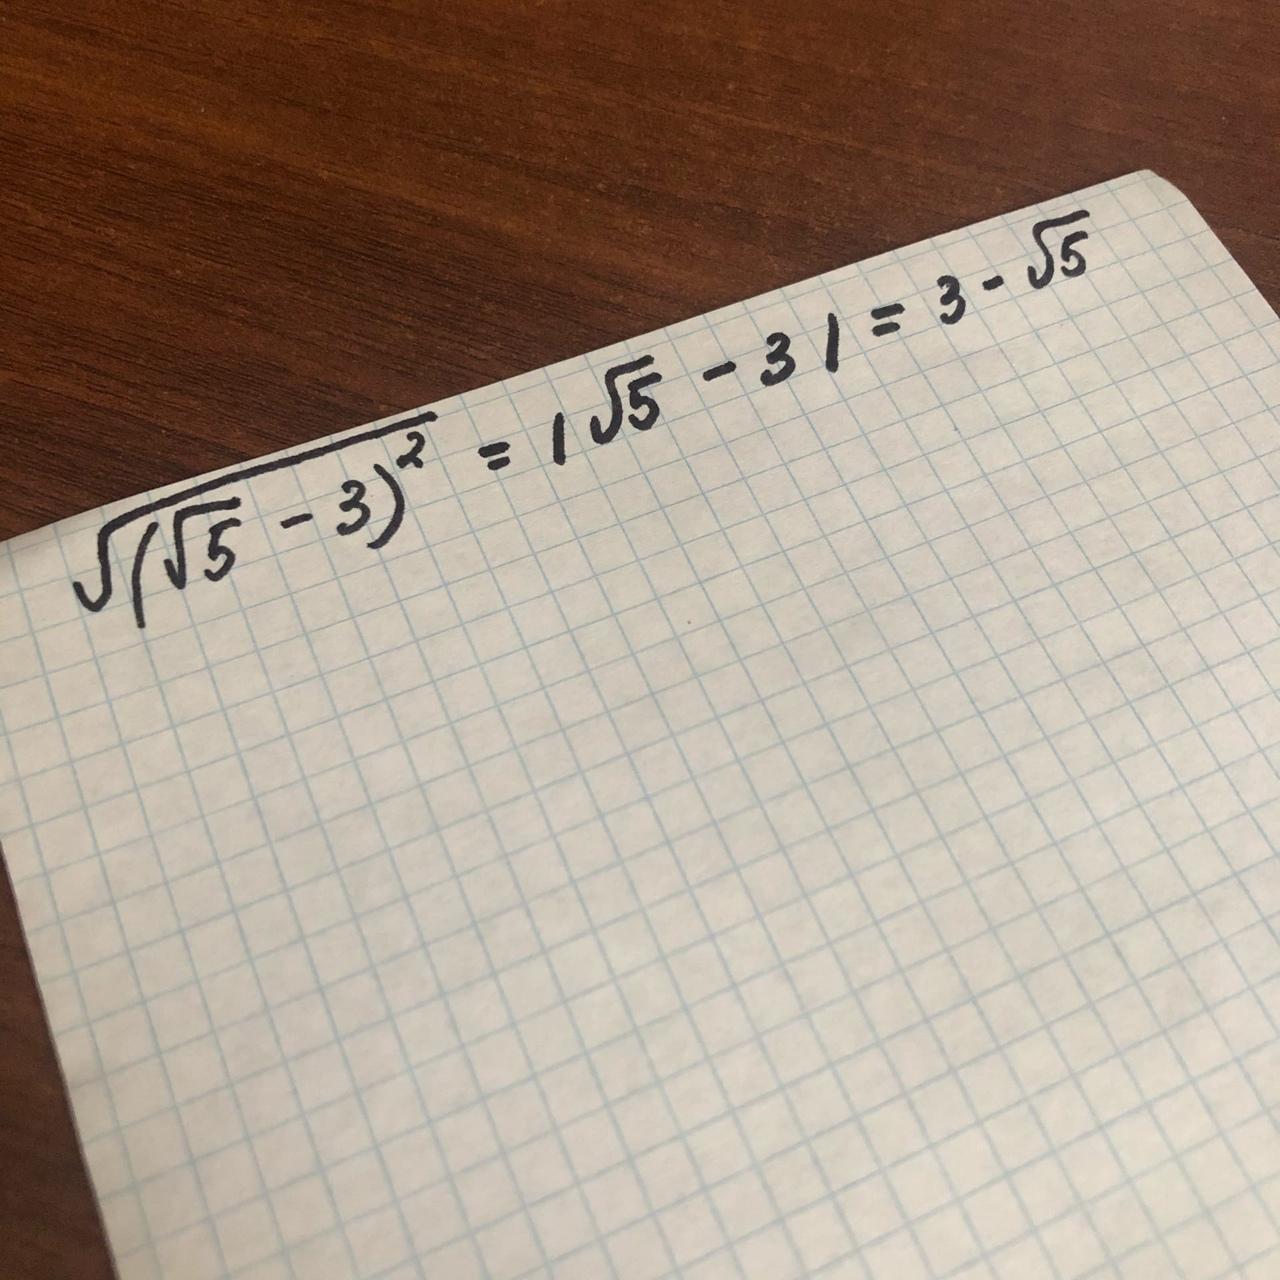 √(√5 - 3)² = |√5 - 3| = 3 - √5